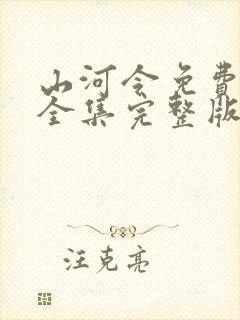 山河令免費
全集完整版
汪克亮